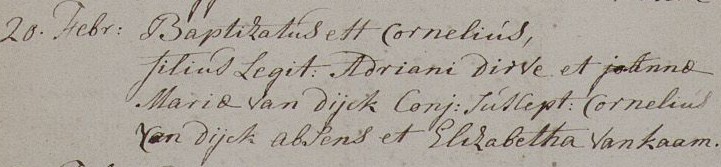 20. Febr: Baptizatus est Cornelius,
filius Legit: Adriani Dirve et joannæ
Mariæ van Dijck Conj: Suscept: Cornelius
van Dijck absens et Elizabetha Van kaam.